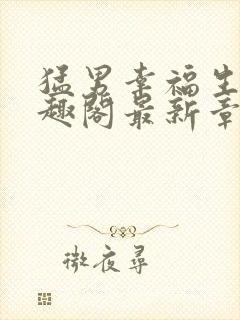 猛男幸福生
趣阁最新章
微夜寻